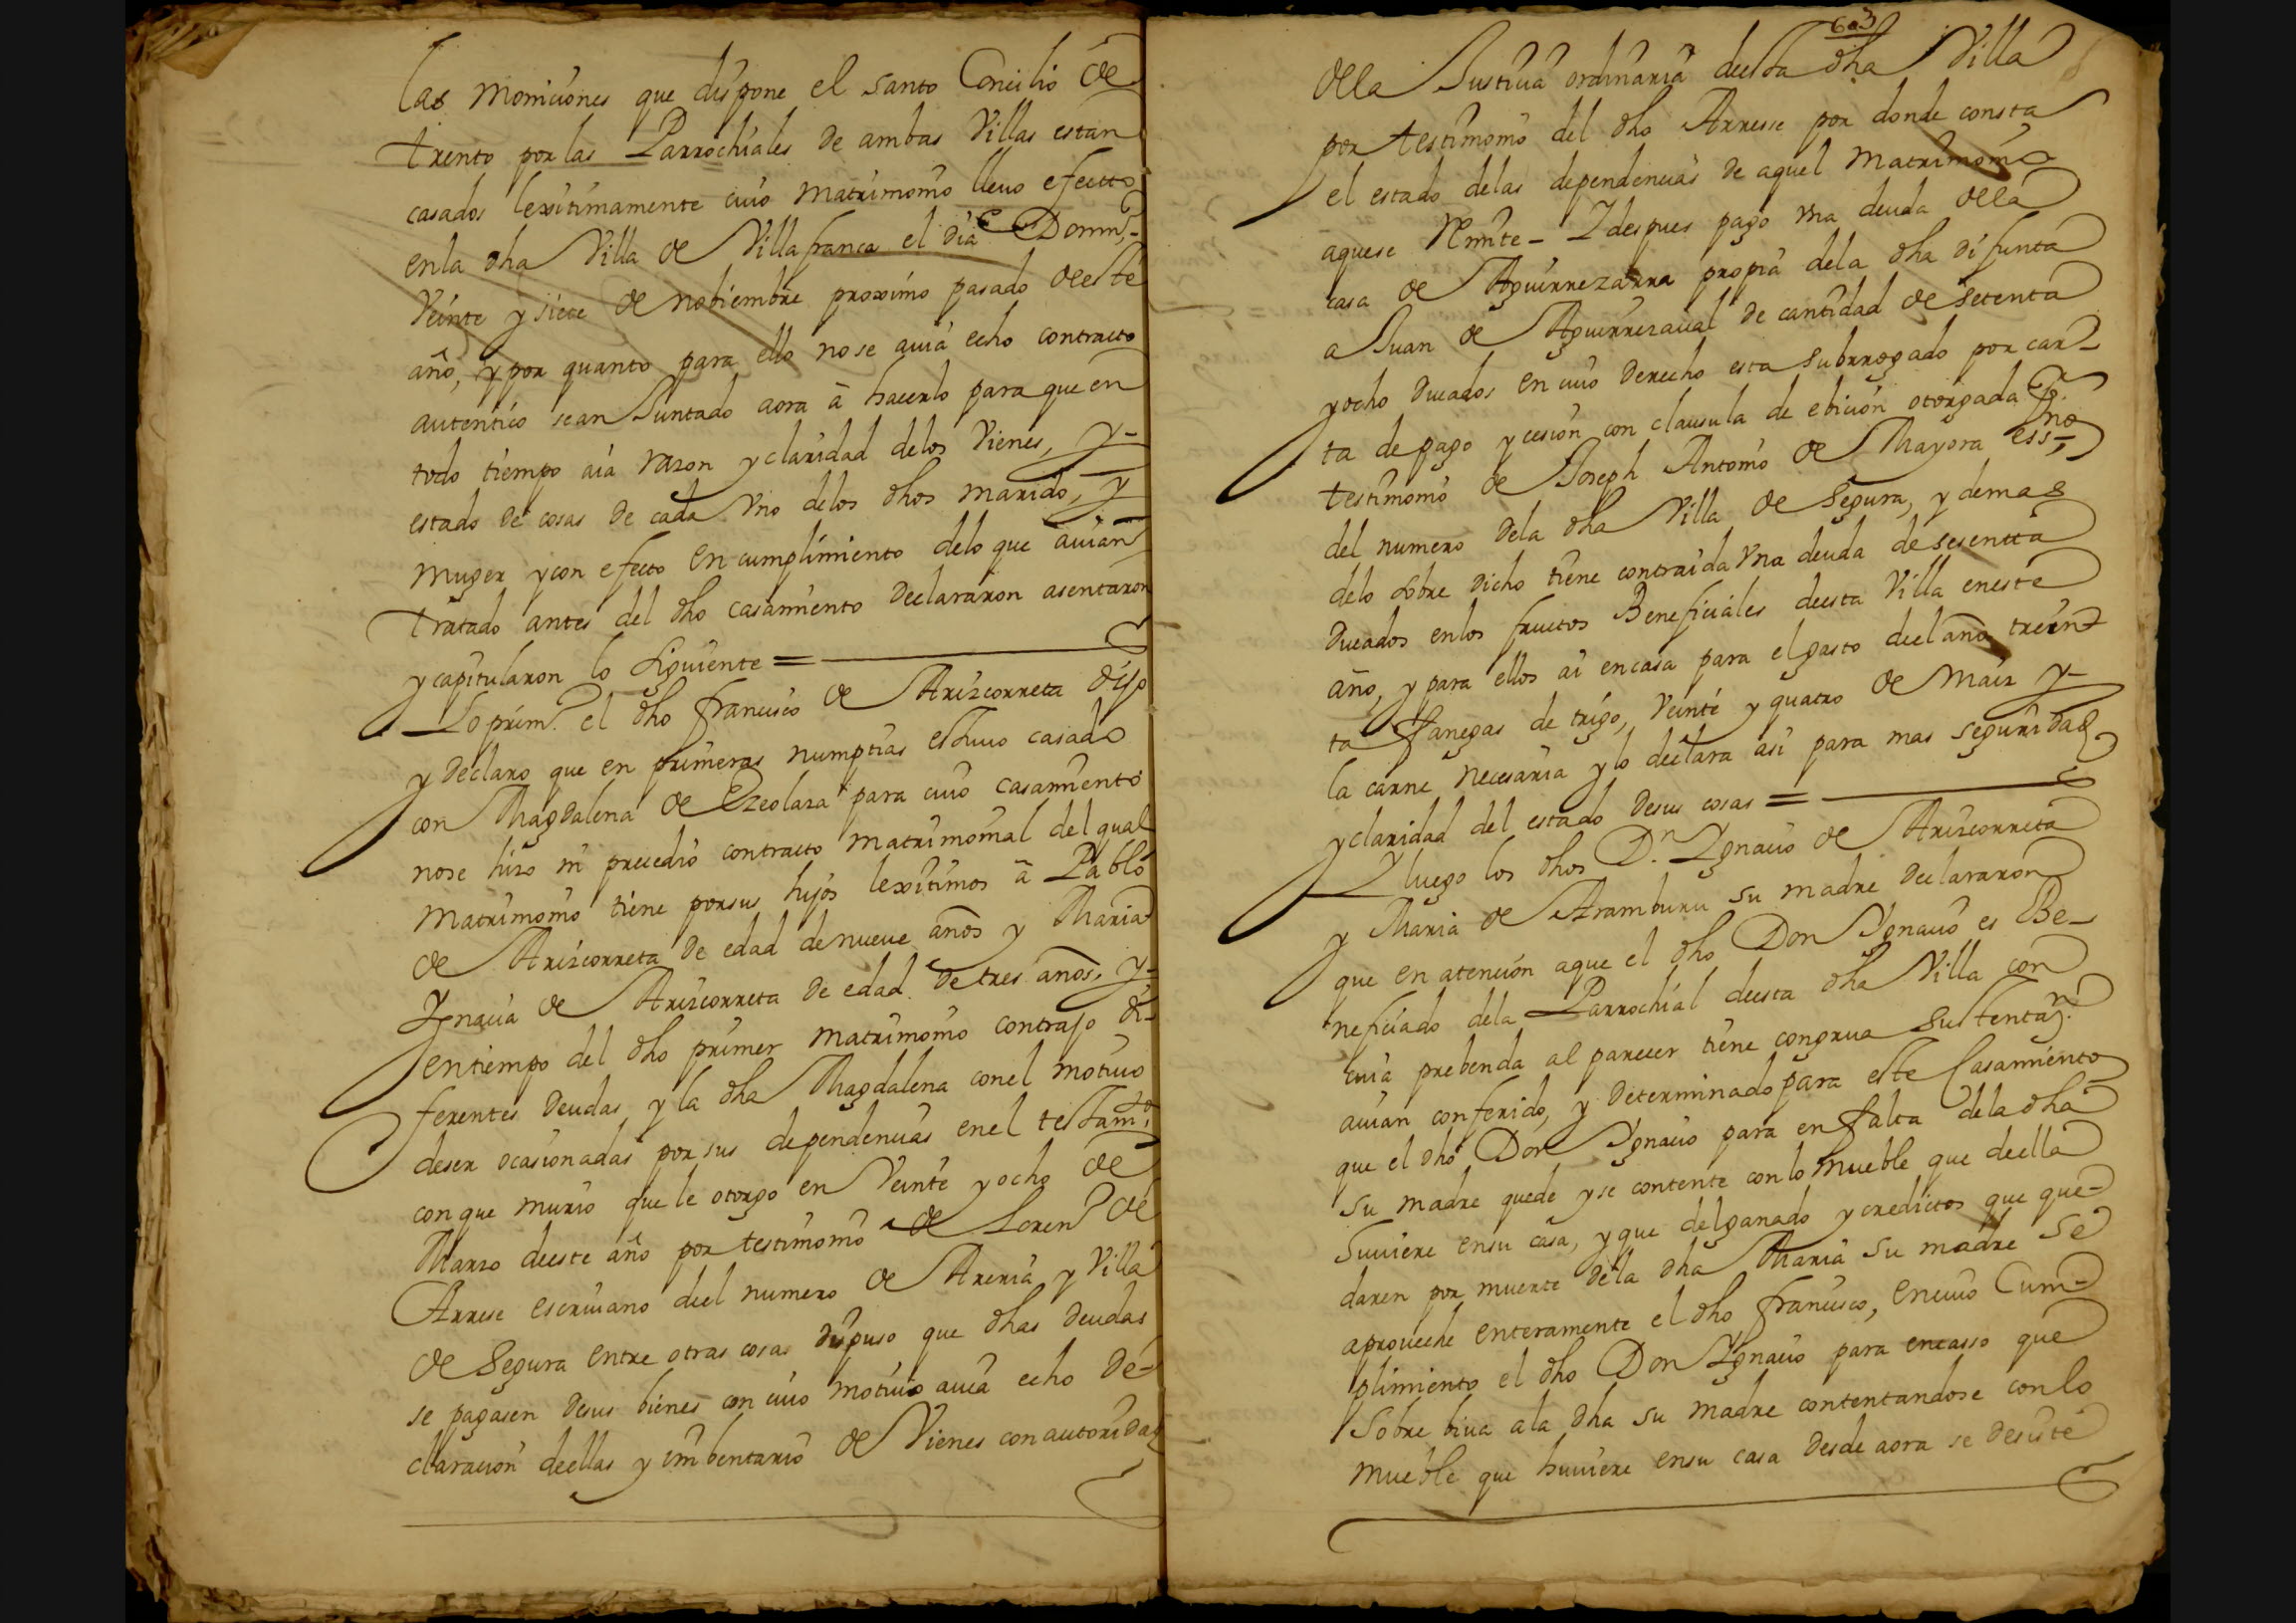 las moniciones que dispone el santo Concilio de
trento por las Parrochiales de ambas Villas estan
casados lexitimamente cuio matrimonio lleuo efecto
en la dha Villa de Villafranca el dia Domin.º
Veinte y siete de nobiembre proximo pasado deeste
año, y por quanto para ello nose auia echo contracto
autentico sean Juntado aora â hacerlo para que en
todo tiempo aia razon y claridad delos Vienes, y-
estado de cosas de cada Vno delos dhos marido, y
muger y con efecto en cumplimiento delo que auian
tratado antes del dho casamiento declararon asentaron
y capitularon lo siguiente =
Lo prim.º el dho francisco de Arizcorreta dijo
y declaro que en primeras numptias estuuo casado
con Magdalena de Ezeolaza para cuio casamiento
nose hizo ni precedio contracto matrimonial del qual
matrimonio tiene porsus hijos lexitimos â Pablo
de Arizcorreta de edad de nueue años y Maria
Ygnacia de Arizcorreta de edad de tres años, y-
entiempo del dho primer matrimonio contrajo di-
ferentes deudas, y la dha Magdalena conel motiuo
deser ocasionadas por sus dependencias enel testam.to
con que murio que le otorgo en Veinte y ocho de
Marzo deeste año por testimonio de Loren.º de
Arrese escriuano deel numero de Areria y Villa
de Segura entre otras cosas dispuso que dhas deudas
se pagasen desus bienes con cuio motiuo auia echo de-
claracion deellas y imbentario de Vienes con autoridad
603
dela Justicia ordinaria deesta dha Villa
por testimonio del dho Arrese por donde consta
el estado delas dependencias de aquel matrimonio
aquese Remite- Y despues pago vna deuda dela
casa de Aguirrezarra propia dela dha difunta
a Juan de Aguirrezaual de cantidad de setenta
y ocho ducados en cuio derecho esta subrrogado por car-
ta de pago y cesion con clausula de ebicion otorgada Por
testimonio de Joseph Antonio de Mayora ess.no
del numero dela dha Villa de Segura, y demas
delo sobre dicho tiene contraida vna deuda de sesenta
ducados enlos fructos Beneficiales deesta Villa eneste
año, y para ellos ai encasa para el gasto deel año, trein-
ta fanegas de trigo, Veinte y quatro de maiz y-
la carne necesaria y lo declara asi para mas seguridad
y claridad del estado desus cosas =
Y luego los dhos D.n Ygnacio de Arizcorreta
y Maria de Aramburu su madre declararon
que en atencion aque el dho Don Ygnacio es Be-
neficiado dela Parrochial deesta dha Villa con
cuia prebenda al parecer tiene congrua sustentaz.n
auian conferido, y determinado para este Casamiento
que el dho Don Ygnacio para en falta dela dha
su madre quede y se contente con lo mueble que deella
huuiere ensu casa, y que delganado y creditos que que-
daren por muerte dela dha Maria su madre se
aproueche enteramente el dho francisco, encuio Cum-
plimiento el dho Don Ygnacio para encasso que
Sobre biua ala dha su madre contentandose conlo
mueble que huuiere ensu casa desde aora se desiste